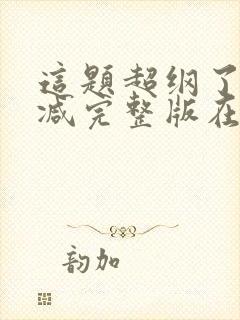 這題超纲了
减完整版在
韵加